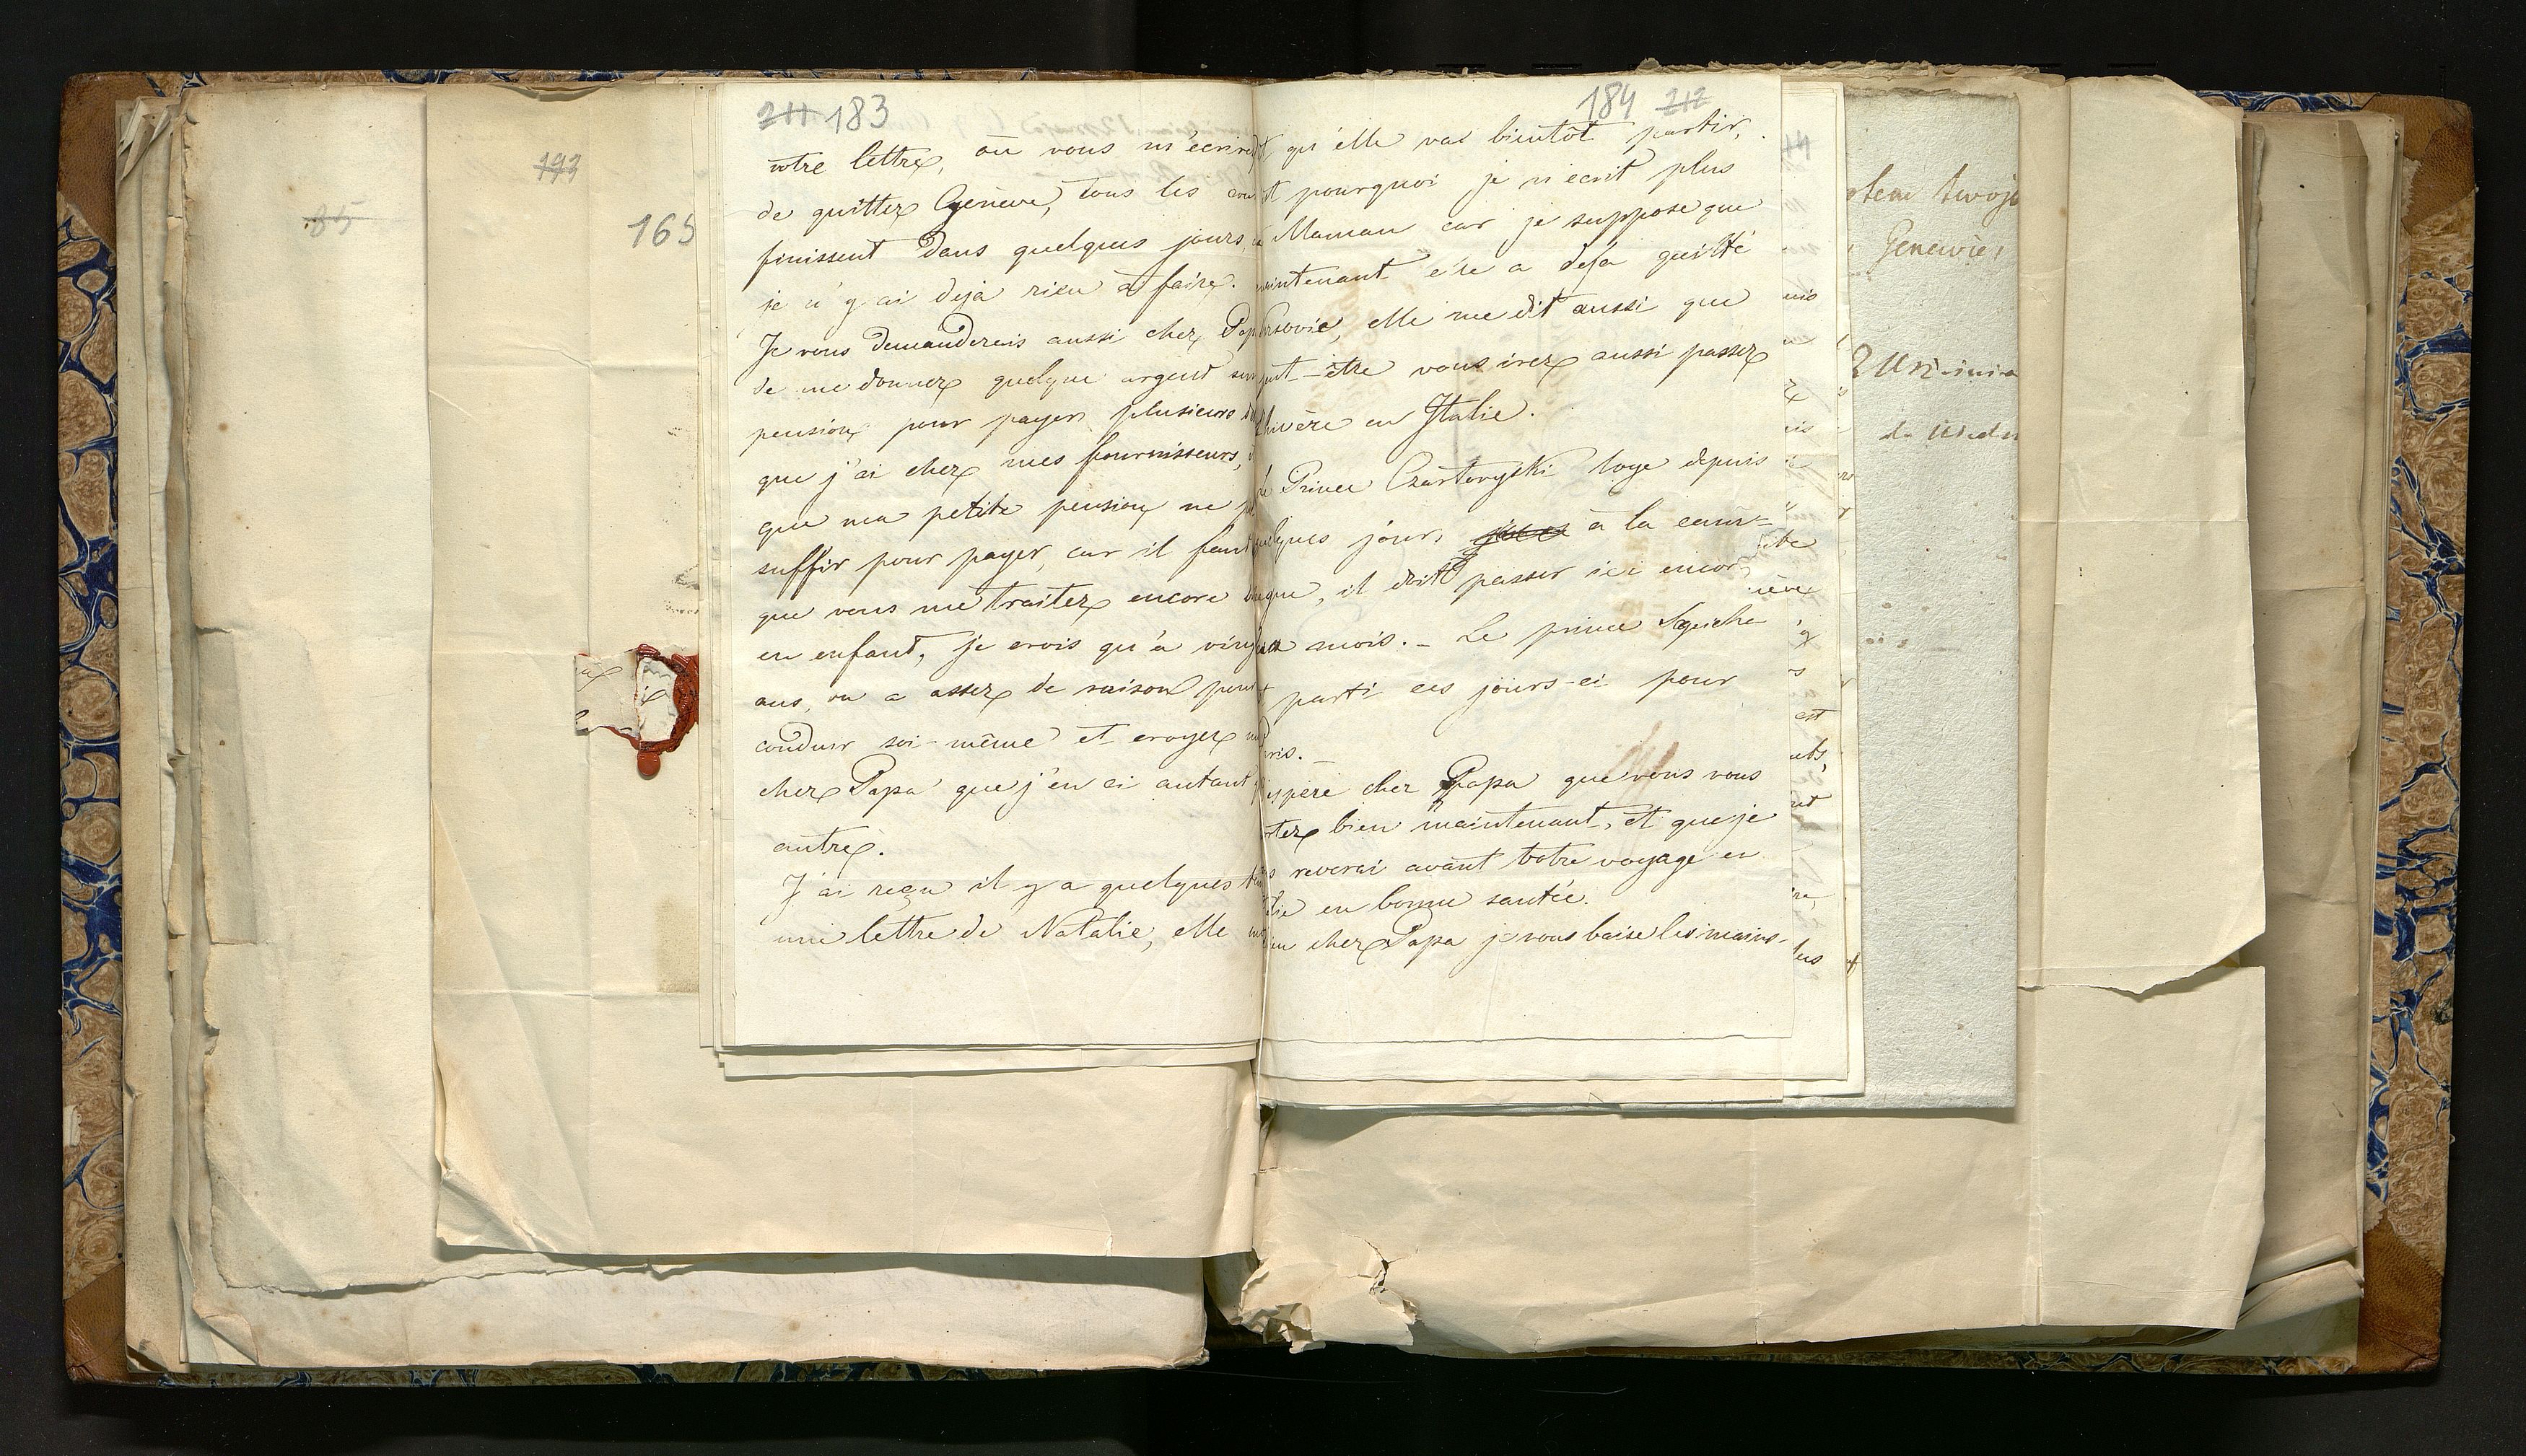 211 183
votre lettre, où vous m'écriv
de quittez Génève, tous les cou
finissent dans quelques jours
je n'y ai déjà rien à faire.
Je vous demanderais aussi cher Pap
de me donnez quelque argent sur
pension pour payer plusieurs
que j'ai chez mes fournisseurs,
que ma petite pension ne
suffir pour payer, car il faut
que vous me traitez encore
en enfant, je crois qu'à ving
ans, on a assez de raison pour
conduir soi-même et croyez
cher Papa que j'en ai autant
autre.
J'ai reçu il y a quelques
une lettre de Natalie, elle
184 212
qu'elle va bientôt partir,
pourquoi je n'ecrit plus
Maman car je suppose que
maintenant elle a déjà quitté
rsovie, elle me dit aussi que
peut-être vous irez aussi passez
l'hivère en Italie.
Prince Czartoryski loge depuis
quelques jours à la cam-
pagne, il doit passer ici encor
mois. - Le prince Sapieha
parti ces jours-ci pour
ris.
espère cher Papa que vous vous
rtez bien maintenant, et que je
reverai avant votre voyage en
lie en bonne santée.
cher Papa je vous baise les mains-
193
85
165
twoje
Genewie